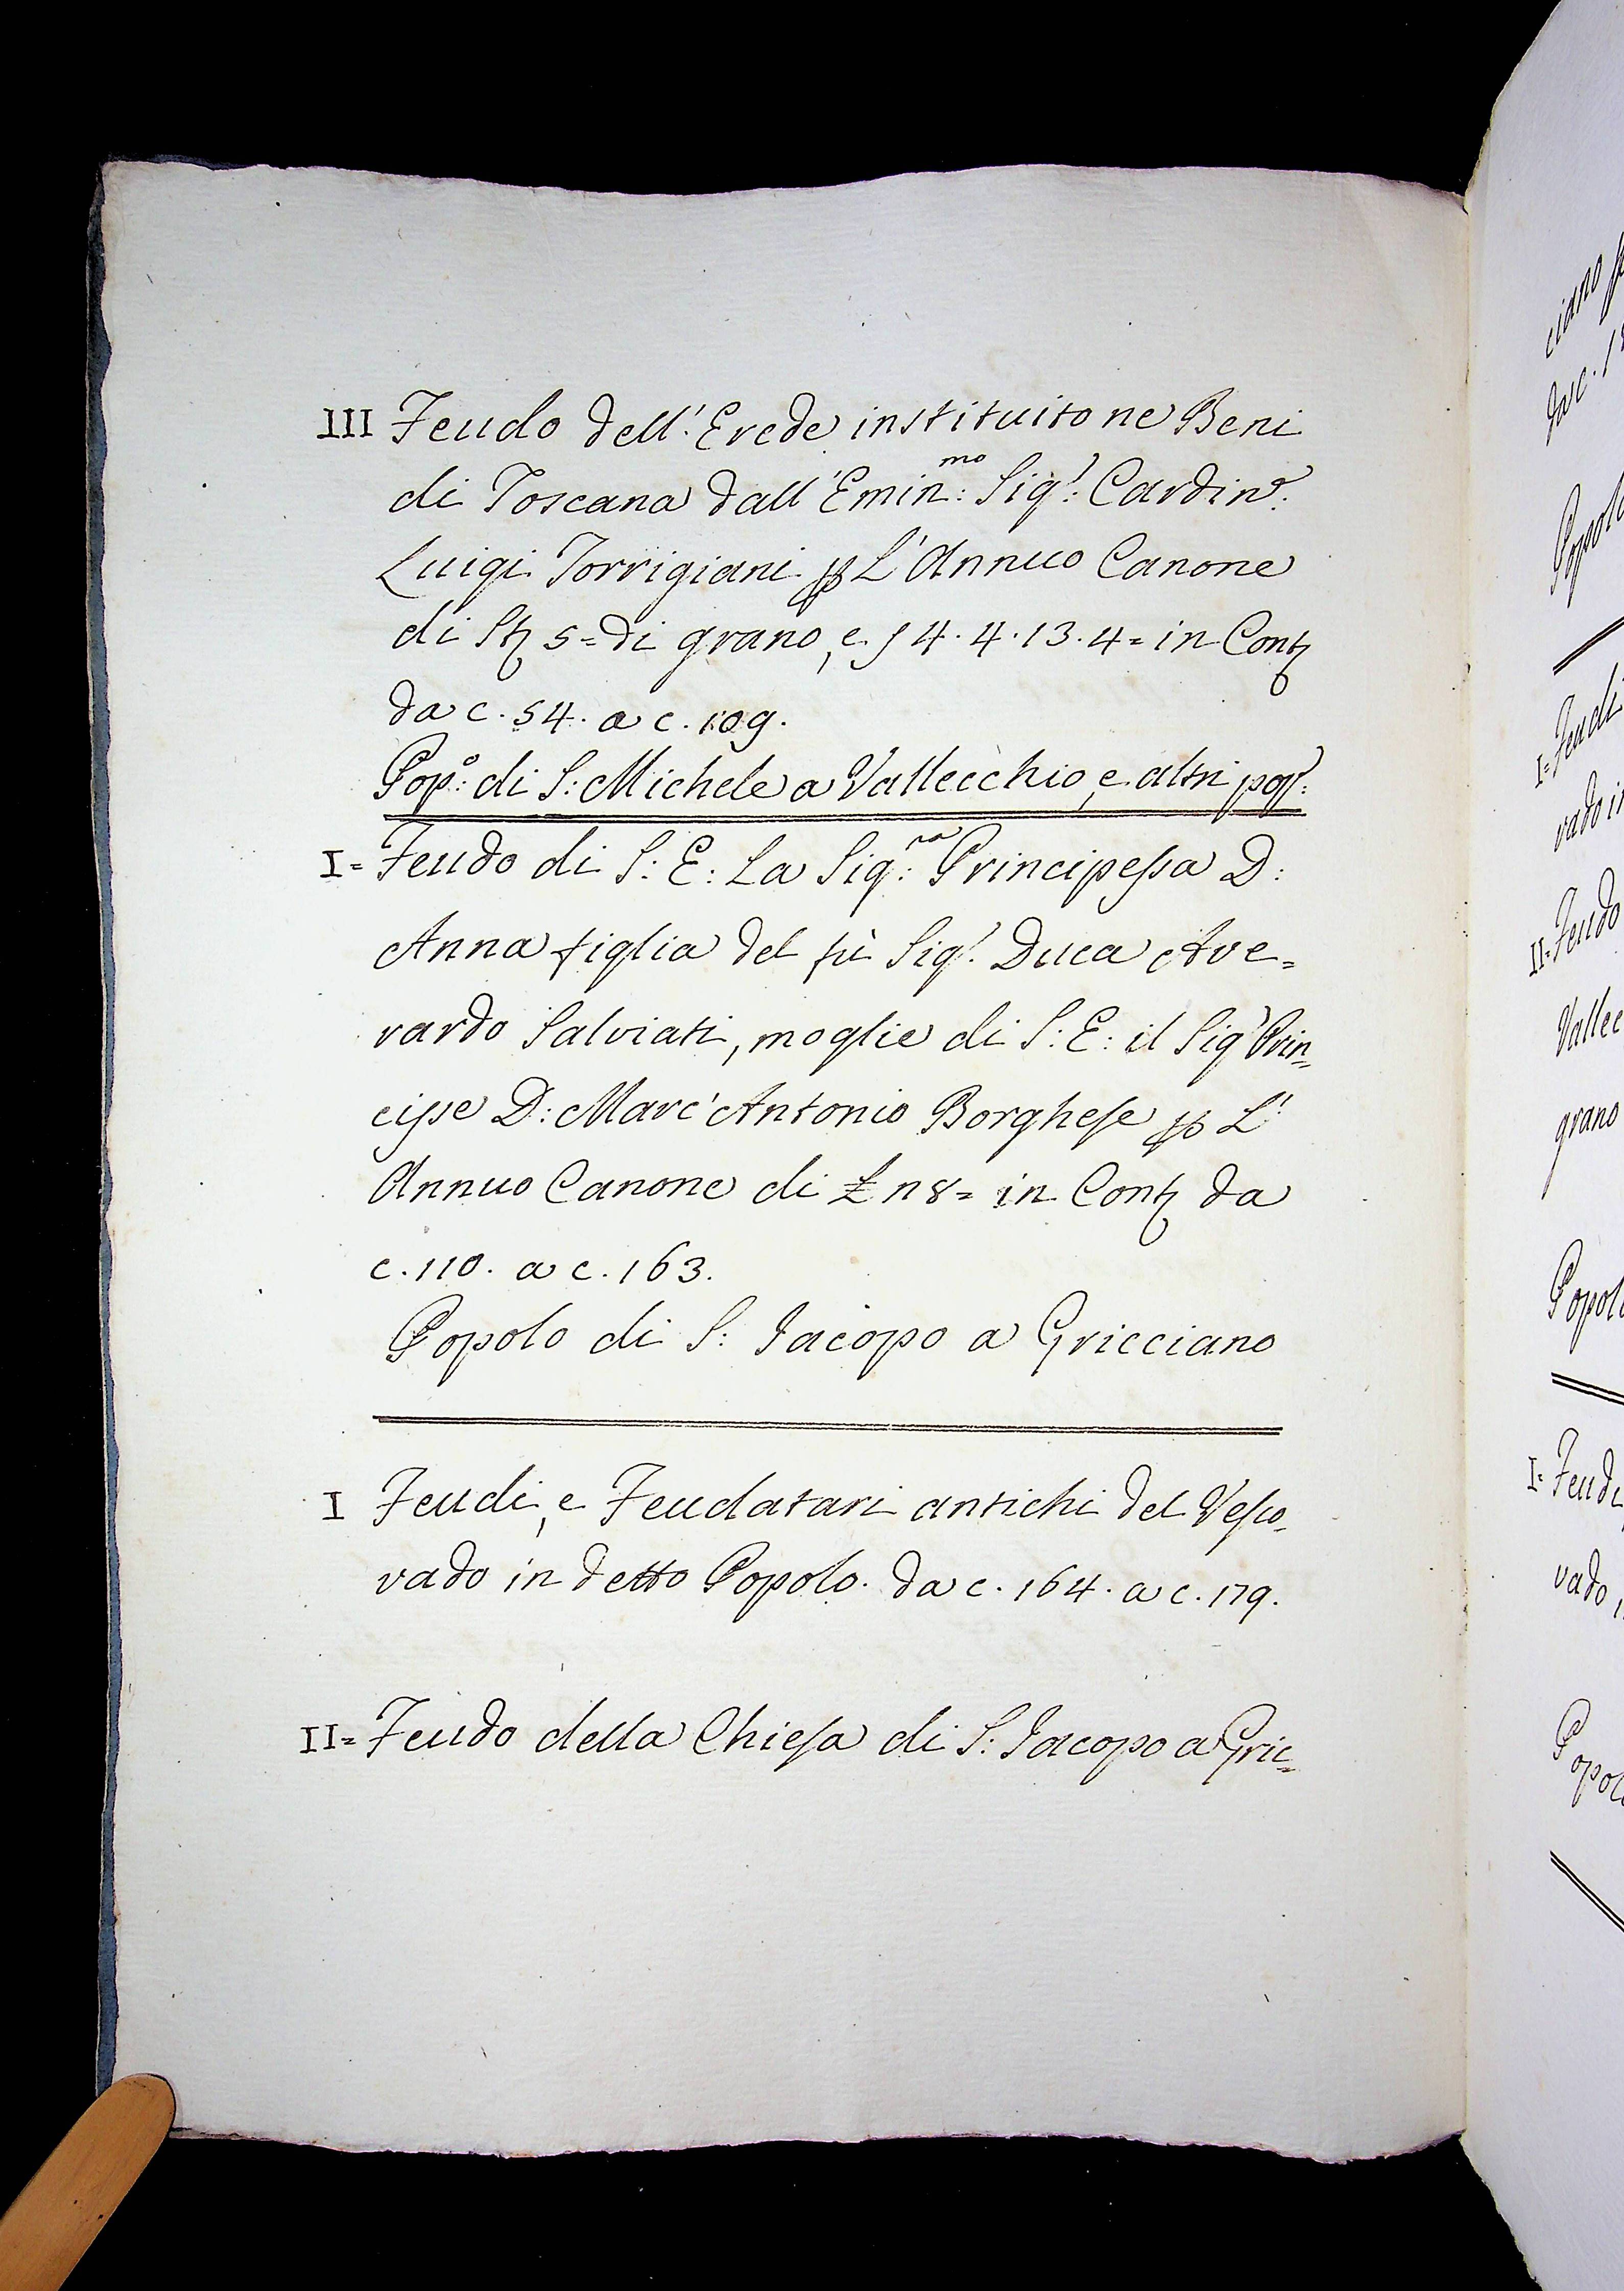 III Feudo dell' Erede instituito ne Beni
di Toscana dall' Emin:mo Sigr: Cardine:
Luigi Torrigiani p L' Annuo Canone
di St 5= di grano, e 4.4.13.4= in Cont
da c. 54. a c. 109.
Pop:o di S: Michele a Vallecchio, e altri pop:
I= Feudo di S: E: La Sig:ra Principessa D:
Anna figlia del fù Sigr. Duca Ave=
rardo Salviati, moglie di S: E: il Sigr Prin=
cipe D: Marc' Antonio Borghese p L'
Annuo Canone di £ 18= in Cont da
c. 110. a c. 163.
Popolo di S: Jacopo a Gricciano
I Feudi, e Feudatari antichi del Vesco=
vado in detto Popolo. da c. 164. a c. 179.
II= Feudo della Chiesa di S: Jacopo a Gric=
ciano
da c. 1
Popolo
I= Feudi
vado in
II= Feudo
Vallec
grano
Popolo
I= Feudi
vado
Popolo